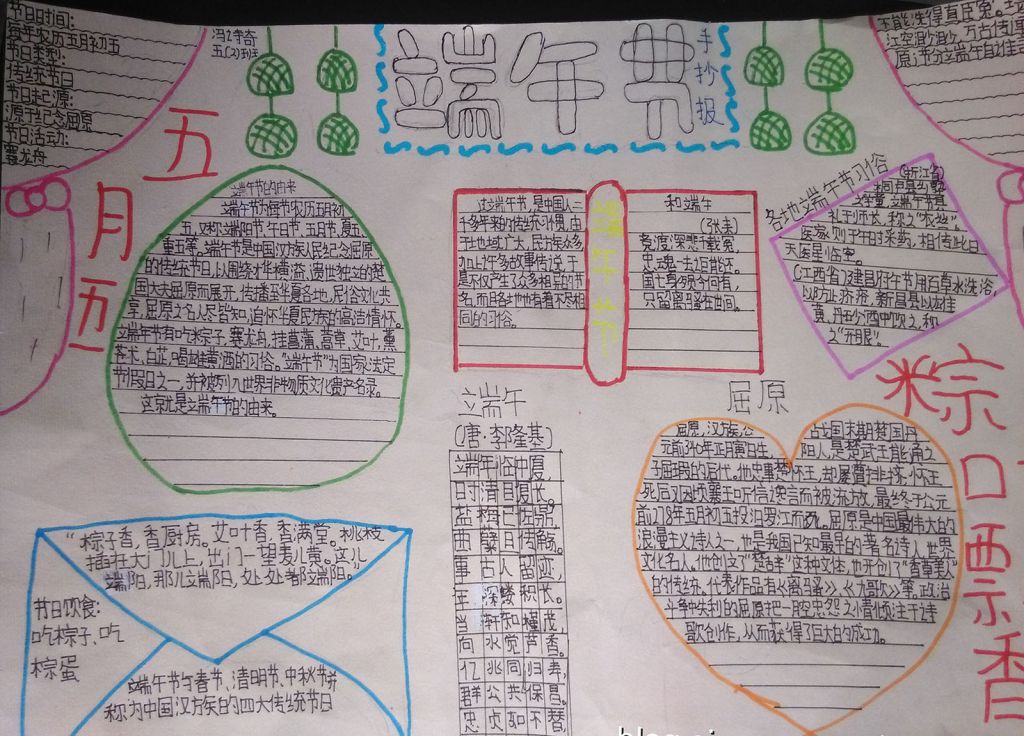 节日时间:
每年农历五月初五
节日类型:
传统节日
节日起源:
源于纪念屈原
节日活动:
赛龙舟
五(2)班
端午节
手抄报
五
月
五
端午节的由来
端午节为每年农历五月初
五,又称端阳节,午日节,五日节,夏五,
重五等。端午节是中国汉族人民纪念屈原
的传统节日,以围绕才华横溢,遗世独立的楚
国大夫屈原而展开,传播至华夏各地,民俗文化共
享,屈原之名人尽皆知,追怀华夏民族的高洁情怀。
端午节有吃粽子,赛龙舟,挂菖蒲,蒿草,艾叶,薰
苍术,白芷,喝雄黄酒的习俗。“端午节”为国家法定
节假日之一,并被列入世界非物质文化遗产名录。
这就是端午节的由来。
过端午节,是中国人二
千多年来的传统习惯,由
于地域广大,民族众多
加上许多故事传说,于
是不仅产生了众多相异的节
名,而且各地也有着不尽相
同的习俗。
端午节
和端午
(张耒)
竞渡深悲千载冤,
忠魂一去讵能还。
国亡身殒今何有,
只留离骚在世间。
各地端午节习俗
(浙江省)
桐庐县
礼于师长,称之“衣丝”。
医家则于午时采药,相传此日
天医星临空。
(江西省)建昌府午节用百草水洗浴,
以防止疥疮,新昌县以雄
黄、丹砂酒中饮之,称
之“开眼”。
粽
口
票
香
端午
(唐·李隆基)
端午临中夏,
时清日复长。
盐梅已佐鼎,
曲糵且传觞。
事古人留迹,
年深缕积长。
当轩知槿茂,
向水觉芦香。
亿兆同归寿,
群公共保昌。
忠贞如不替,
屈原
屈原,汉族,公
元前340年正月寅日生,
占战国末期楚国丹
阳人,是楚武王熊通之
子屈瑕的后代。他忠事楚怀王,却屡遭排挤,怀王
死后又因顷襄王听信谗言而被流放,最终于公元
前278年五月初五投汨罗江而死。屈原是中国最伟大的
浪漫主义诗人之一,也是我国已知最早的著名诗人,世界
文化名人。他创立了“楚辞”这种文体,也开创了“香草美人”
的传统。代表作品有《离骚》、《九歌》等。政治
斗争中失利的屈原把一腔忠怨之情倾注于诗
歌创作,从而获得了巨大的成功。
“粽子香,香厨房。艾叶香,香满堂。桃枝
插在大门上,出门一望麦儿黄。这儿
端阳,那儿端阳,处处都端阳。
节日饮食:
吃粽子、吃
棕蛋
端午节与春节、清明节、中秋节并
称为中国汉族的四大传统节日